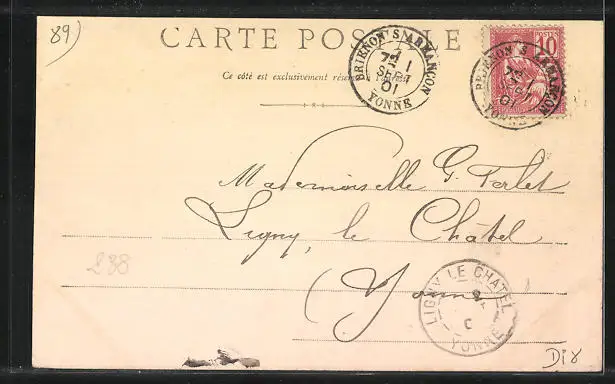 89)
CARTE POSTALE
Ce côté est exclusivement réservé à l'adresse
BRIENON S. ARMANÇON
7E 1
SEPT
01
YONNE
POSTES
10
BRIENON S. ARMANÇON
7E
01
YONNE
Mademoiselle G. Ferlet
Ligny le Châtel
(Yonne)
288
LIGNY LE CHATEL
YONNE
D18